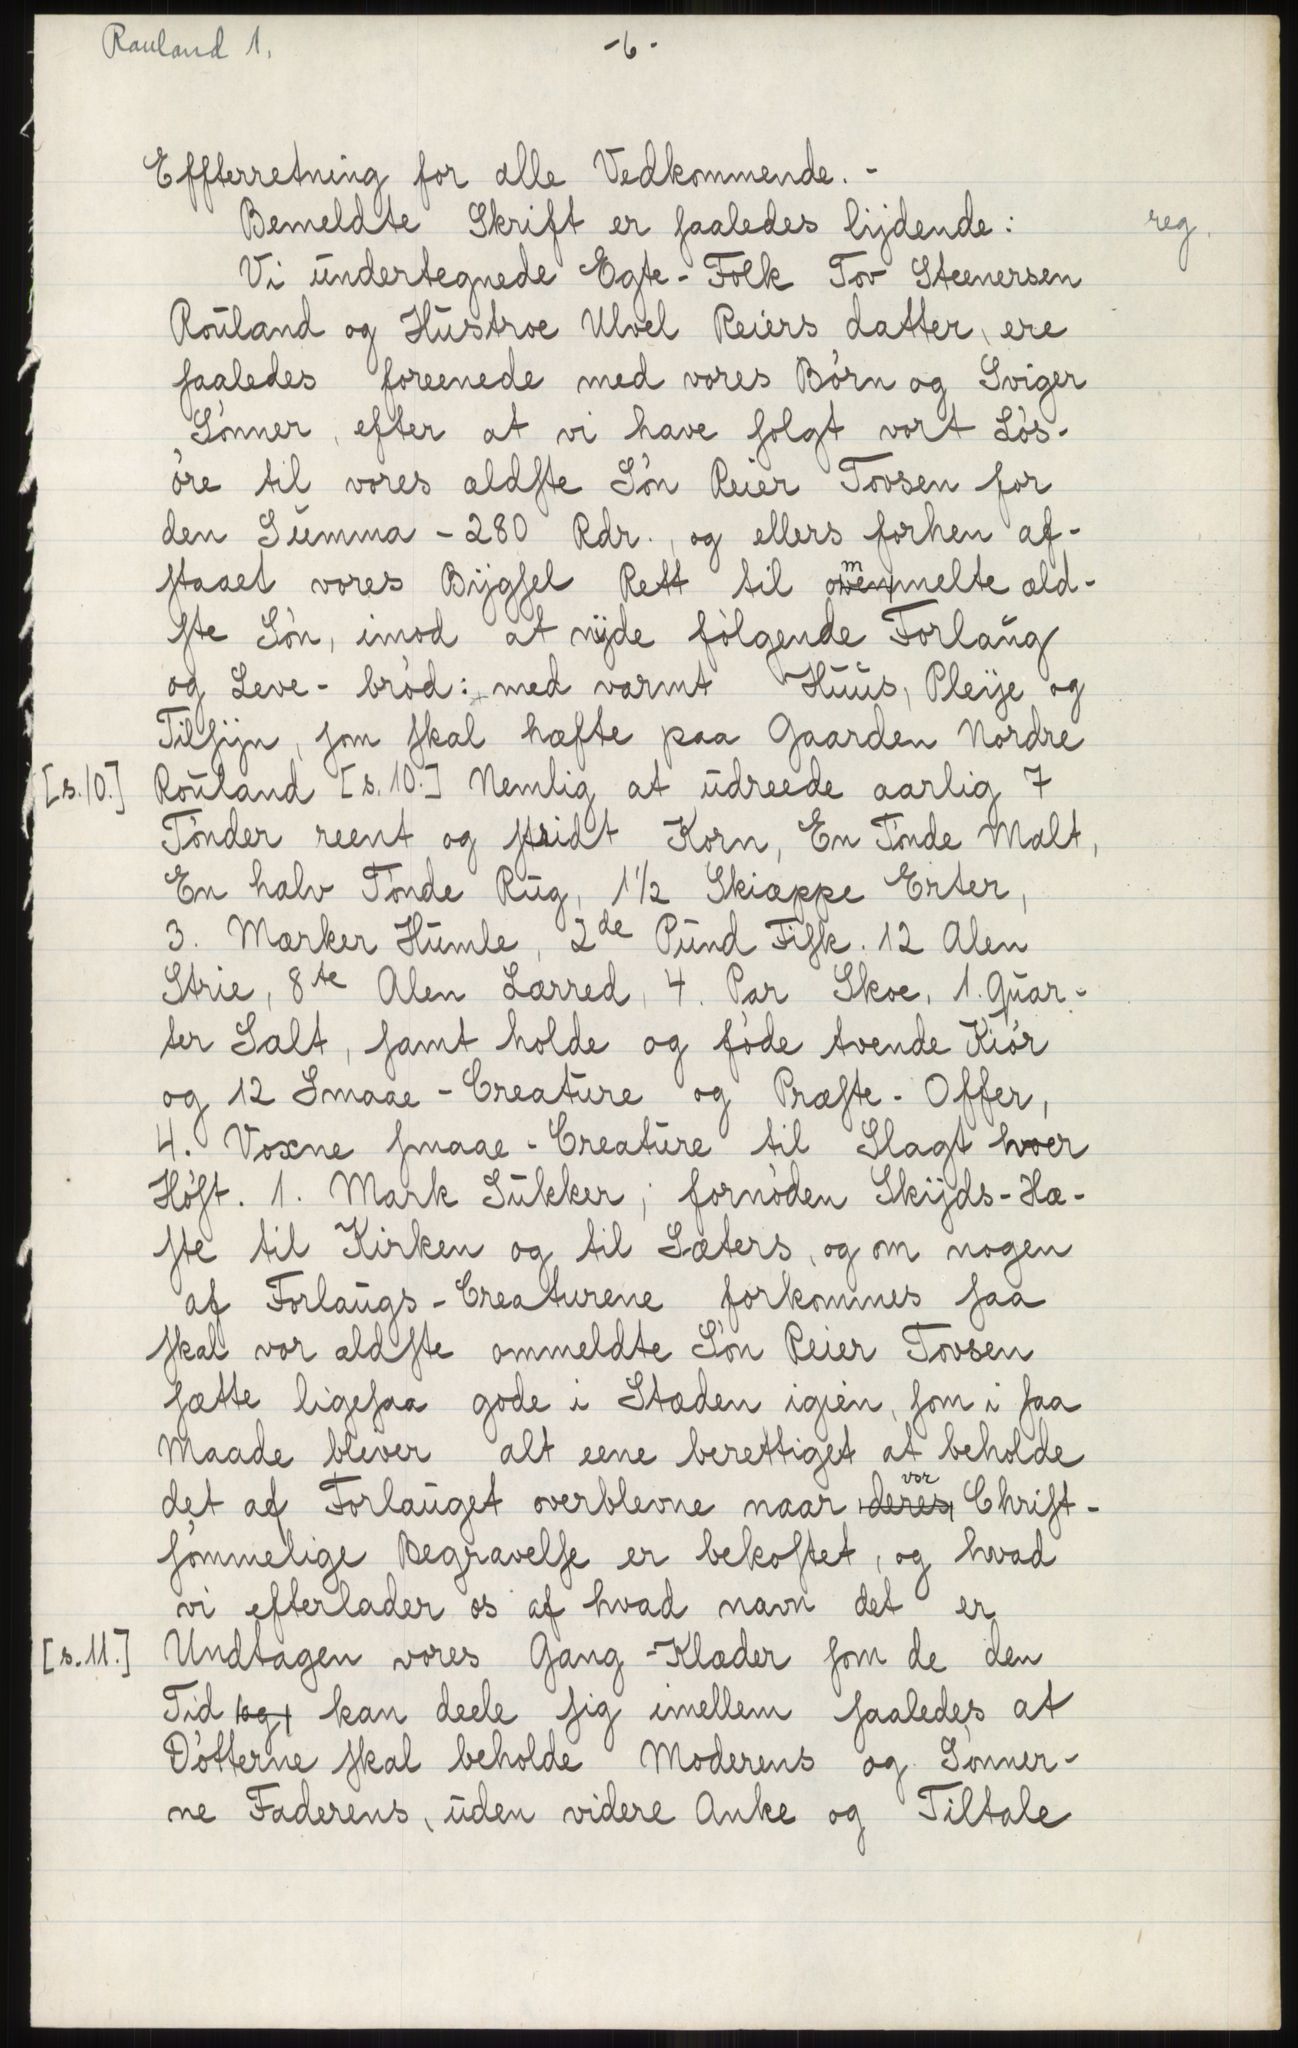 Rauland 1.
-6-
Effterretning for alle Vedkommende. -
Bemeldte Skrift er saaledes lijdende:
reg.
Vi undertegnede Egte-Folk Tov Steenersen
Rouland og Hustroe Ulvel Reiers datter, ere
saaledes foreenede med vores Börn og Sviger
Sönner, efter at vi have solgt vort Lös-
öre til vores ældste Sön Reier Tovsen for
den Summa - 280 Rdr., og ellers forhen af-
staaet vores Bijgsel Rett til ovenmmelte æld-
ste Sön, imod at nyde fölgende Forlaug
og Leve-bröd: med varmt Huus, Pleije og
Tilsijn, som skal hæfte paa Gaarden Nordre
[s.10.] Rouland [s.10.] Nemlig at udreede aarlig 7
Tönder reent og stridt Korn, En Tönde Malt,
En halv Tönde Rug, 1½ Skiæppe Erter,
3. Mærker Humle, 2de Pund Fisk. 12 Alen
Strie, 8te Alen Lærred, 4. Par Skoe, 1. Quar-
ter Salt, samt holde og föde tvende Kiör
og 12 Smaae-Creature og Præste-Offer,
4. Voxne smaae-Creature til Slagt hver
Höst. 1. Mark Sukker; fornöden Skijds-Hæ-
ste til Kirken og til Sæters, og om nogen
af Forlaugs-Creaturene forkommes saa
skal vor ældste ommeldte Sön Reier Tovsen
sætte ligesaa gode i Stæden igien, som i saa
Maade bliver alt eene berettiget at beholde
det af Forlauget overblevne naar deres vor Christ-
sömmelige Begravelse er bekostet, og hvad
vi efterlader os af hvad navn det er
[s.11.] Undtagen vores Gang-Klæder som de den
Tid og kan deele sig imellem saaledes at
Dötterne skal beholde Moderens og Sönner-
ne Faderens, uden videre Anke og Tiltale